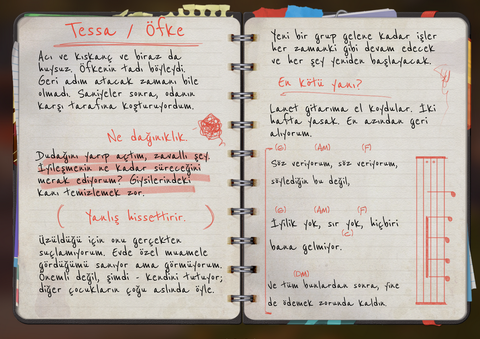 Tessa / Öfke
Acı ve kıskanç ve biraz da
huysuz. Öfkenin tadı böyleydi.
Geri adım atacak zamanı bile
olmadı. Saniyeler sonra, odanın
karşı tarafına koşturuyordum.
Ne dağınıklık.
Dudağını yarıp açtım, zavallı şey.
İyileşmenin ne kadar süreceğini
merak ediyorum? Giysilerindeki
kanı temizlemek zor.
(Yanlış hissettirir.)
Üzüldüğü için onu gerçekten
suçlamıyorum. Evde özel muamele
gördüğümü sanıyor ama görmüyorum.
Önemli değil, şimdi - kendini tutuyor;
diğer çocukların çoğu aslında öyle.
Yeni bir grup gelene kadar işler
her zamanki gibi devam edecek
ve her şey yeniden başlayacak.
En kötü yanı?
Lanet gitarıma el koydular. İki
hafta yasak. En azından geri
alıyorum.
(G) (AM) (F)
Söz veriyorum, söz veriyorum,
söylediğin bu değil,
(G) (AM) (F)
İyilik yok, sır yok, hiçbiri
(C)
bana gelmiyor.
(DM)
Ve tüm bunlardan sonra, yine
de ödemek zorunda kaldın.